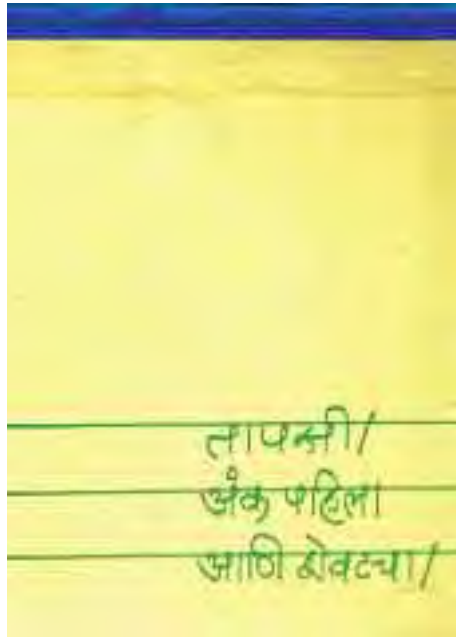 तापसी/
अंक पहिला
आणि शेवटचा/